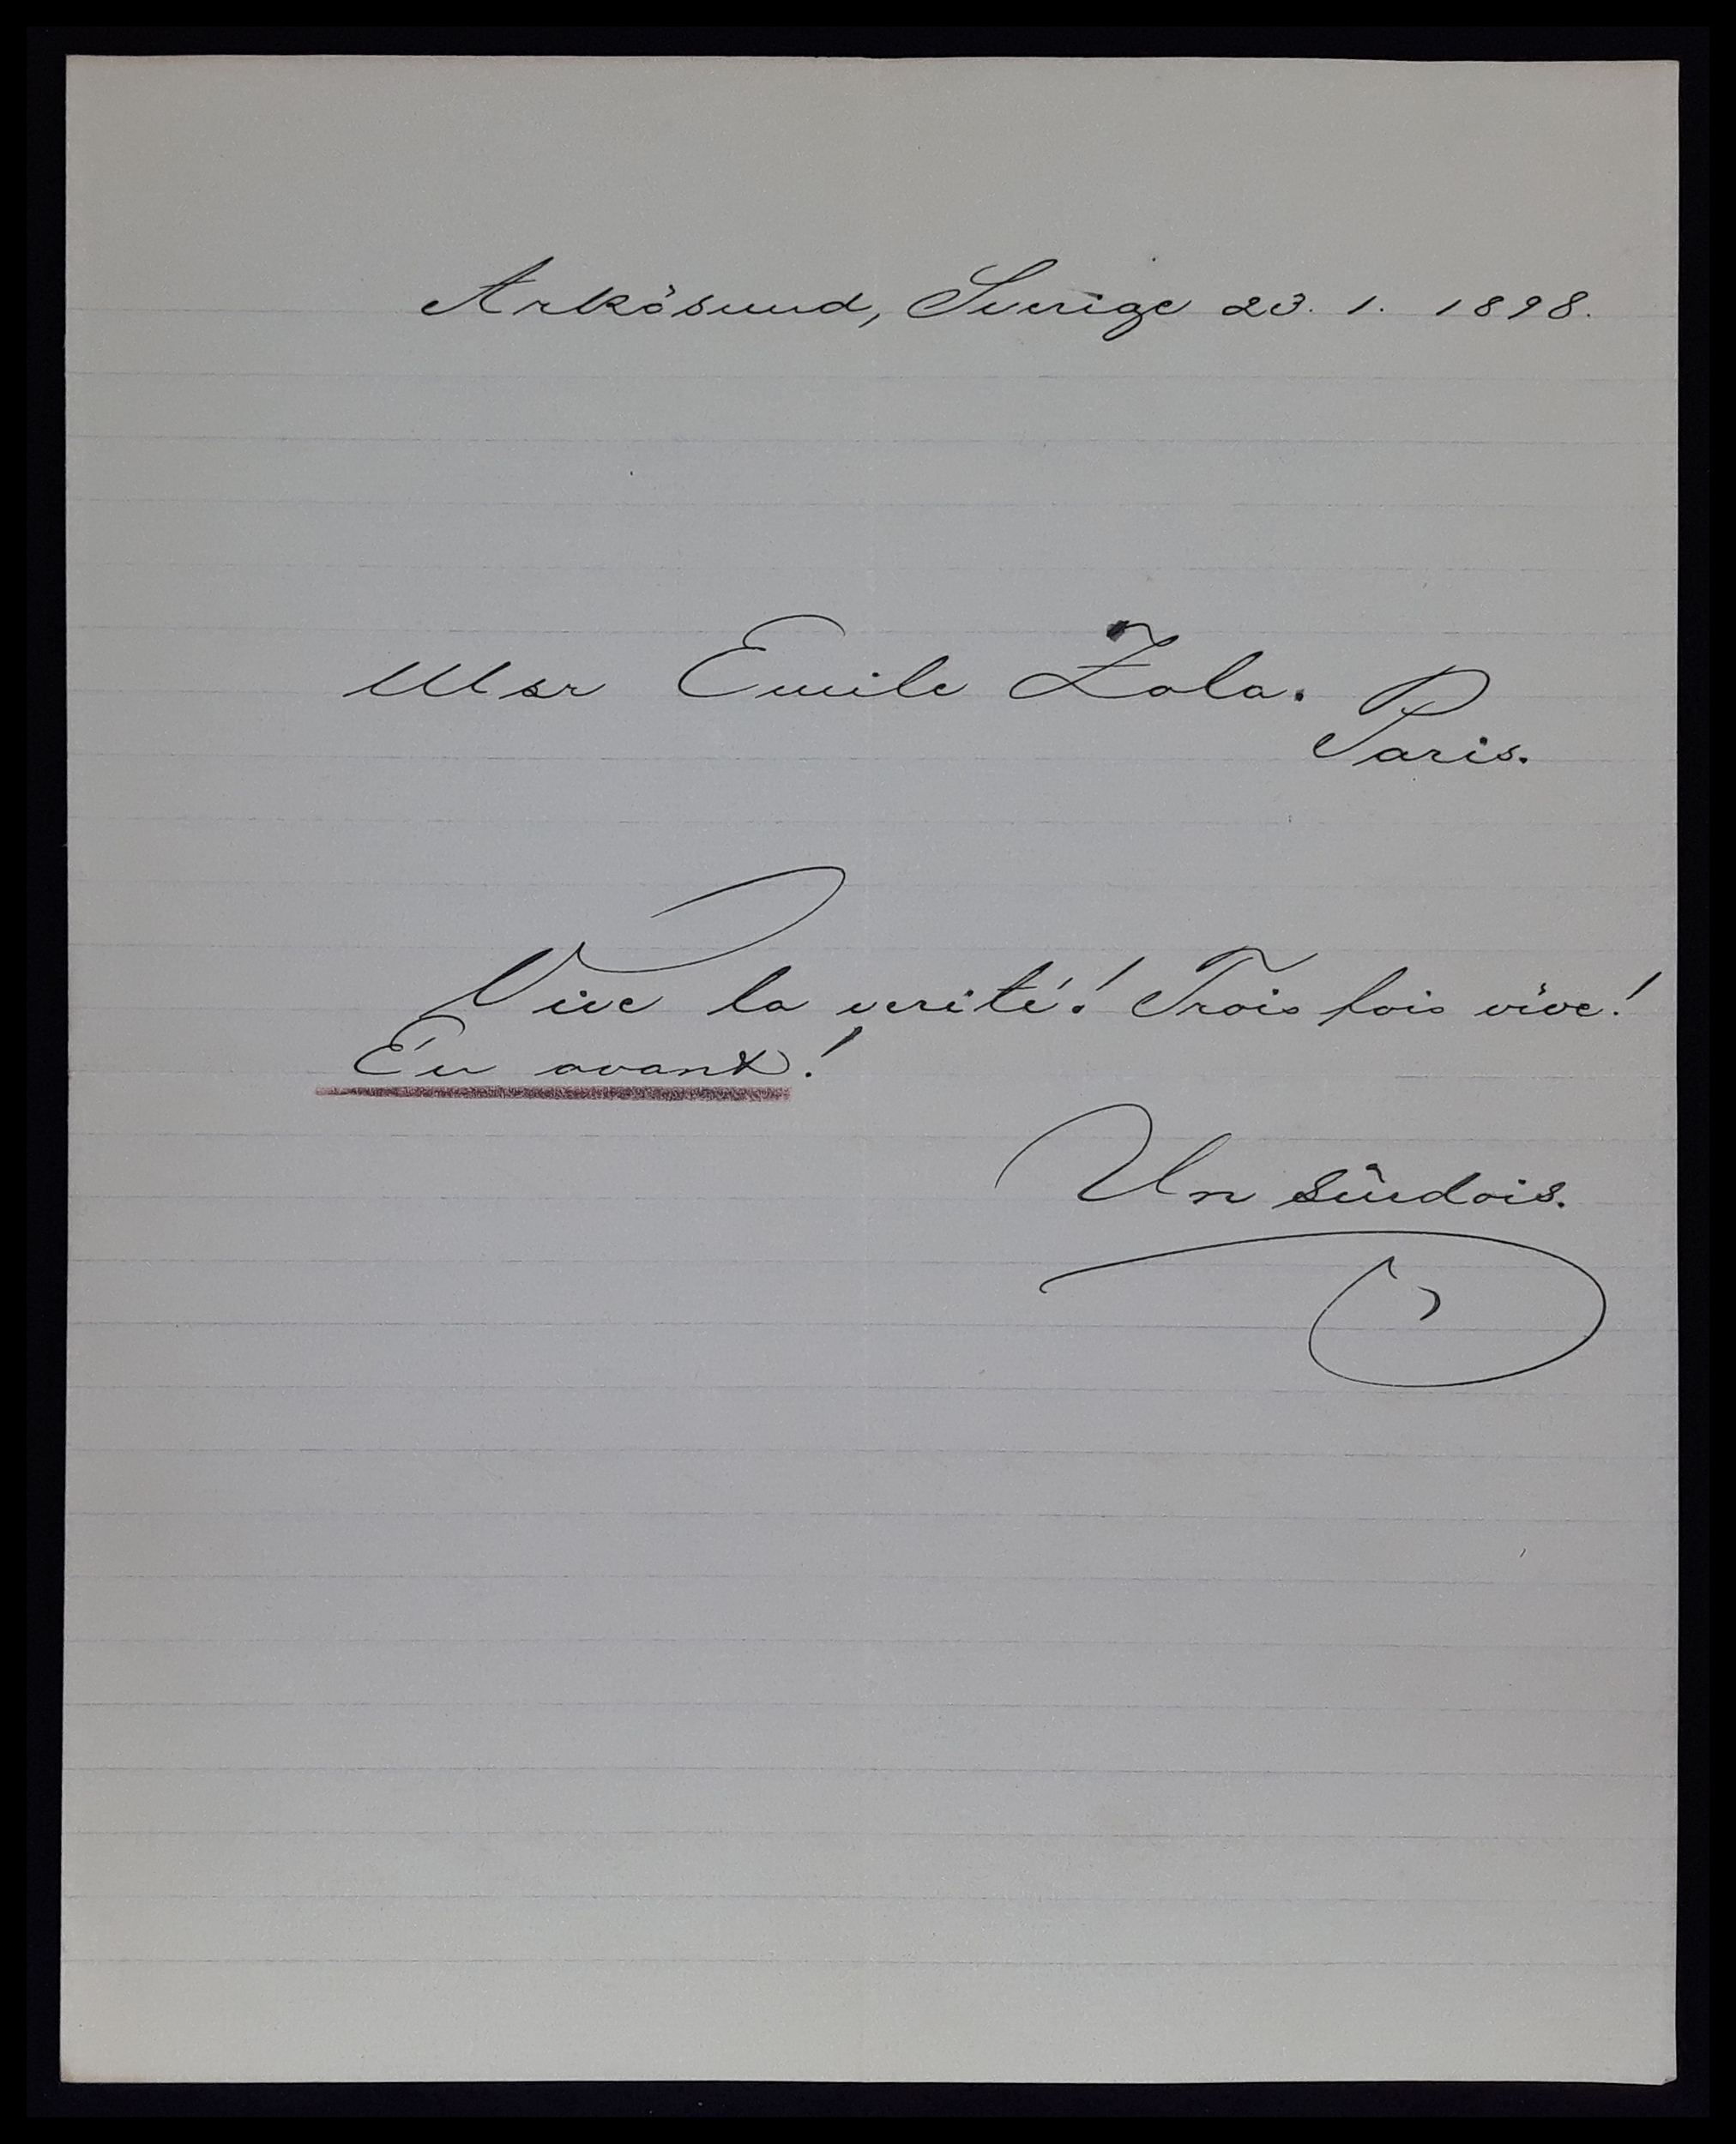 Arkösund, Sverige 23. 1. 1898.
Msr Emile Zola.
Paris.
Vive la verité! Trois fois vive!
En avant!
Un suedois.